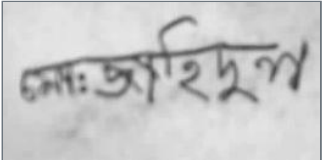 মোঃ জাহিদুল